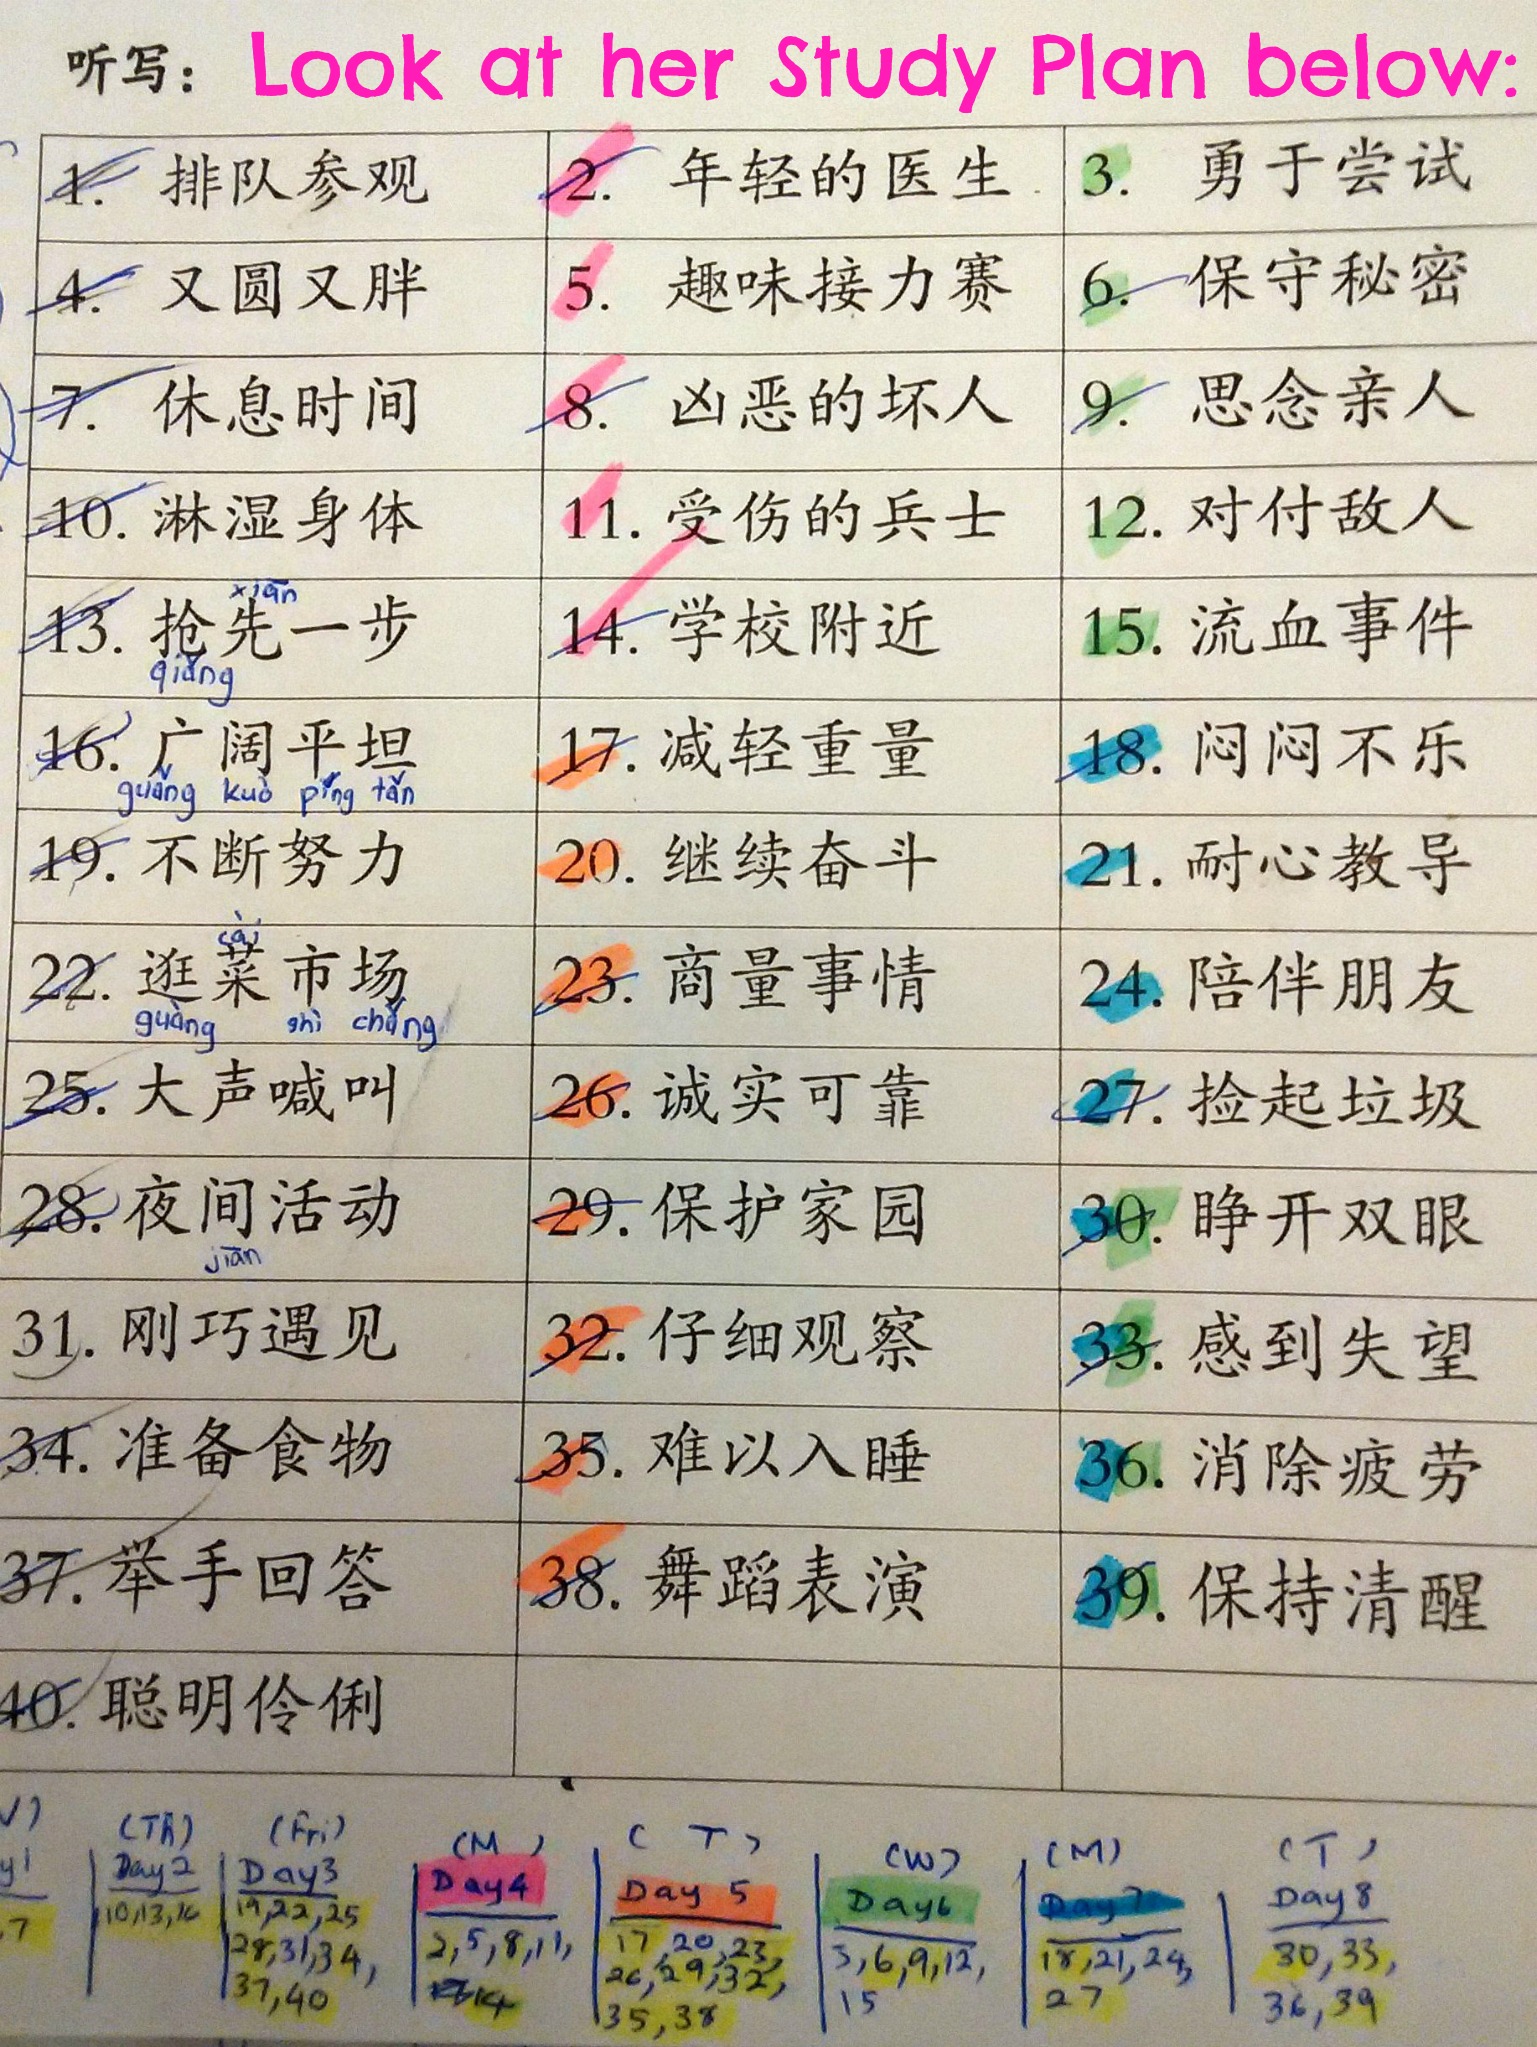 听写: Look at her Study Plan below:
1. 排队参观 2. 年轻的医生 3. 勇于尝试
4. 又圆又胖 5. 趣味接力赛 6. 保守秘密
7. 休息时间 8. 凶恶的坏人 9. 思念亲人
10. 淋湿身体 11. 受伤的兵士 12. 对付敌人
xiān
13. 抢先一步 14. 学校附近 15. 流血事件
qiǎng
16. 广阔平坦 17. 减轻重量 18. 闷闷不乐
guǎng kuò píng tǎn
19. 不断努力 20. 继续奋斗 21. 耐心教导
cài
22. 逛菜市场 23. 商量事情 24. 陪伴朋友
guàng shì chǎng
25. 大声喊叫 26. 诚实可靠 27. 捡起垃圾
28. 夜间活动 29. 保护家园 30. 睁开双眼
jiān
31. 刚巧遇见 32. 仔细观察 33. 感到失望
34. 准备食物 35. 难以入睡 36. 消除疲劳
37. 举手回答 38. 舞蹈表演 39. 保持清醒
40. 聪明伶俐
(Th) (Fri) (M) (T) (W) (M) (T)
y1 Day2 Day3 Day4 Day 5 Day6 Day7 Day8
,7 10,13,16 19,22,25 2,5,8,11, 17,20,23, 3,6,9,12, 18,21,24, 30,33,
28,31,34, 14 26,29,32, 15 27 36,39
37,40 35,38